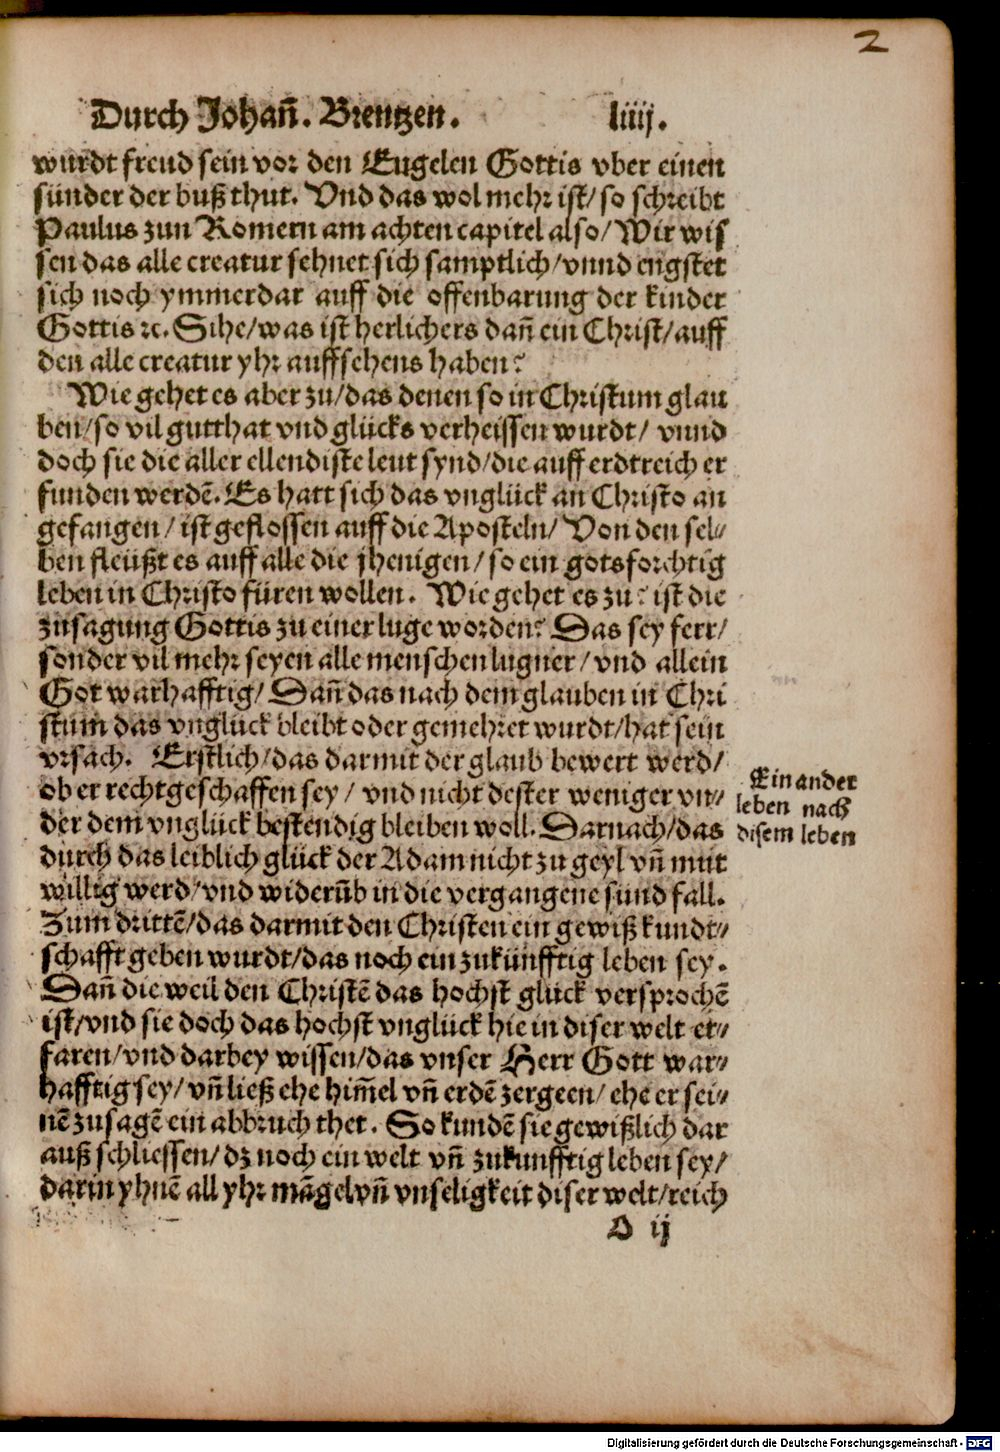 2
Durch Johañ. Brentzen. liiij.
wurdt freud sein vor den Engelen Gottis vber einen
sünder der buß thut. Vnd das wol mehr ist/ so schreibt
Paulus zun Romern am achten capitel also/ Wir wis
sen das alle creatur sehnet sich samptlich/ vnnd engstet
sich noch ymmerdar auff die offenbarung der kinder
Gottis ꝛc. Sihe/ was ist herlichers dañ ein Christ/ auff
den alle creatur yhr auffsehens haben?
Wie gehet es aber zu/ das denen so in Christum glau
ben/ so vil gutthat vnd glücks verheissen wurdt/ vnnd
doch sie die aller ellendiste leut synd/ die auff erdtreich er
funden werdē. Es hatt sich das vnglück an Christo an
gefangen/ ist geflossen auff die Aposteln/ Von den sel⸗
ben fleüßt es auff alle die jhenigen/ so ein gotsforchtig
leben in Christo füren wollen. Wie gehet es zu? ist die
zusagung Gottis zu einer luge worden? Das sey ferr/
sonder vil mehr seyen alle menschen lugner/ vnd allein
Got warhafftig/ Dañ das nach dem glauben in Chri
stum das vnglück bleibt oder gemehret wurdt/ hat sein
vrsach. Erstlich/ das darmit der glaub bewert werd/
ob er rechtgeschaffen sey/ vnd nicht dester weniger vn⸗
der dem vnglück bestendig bleiben woll. Darnach/ das
durch das leiblich glück der Adam nicht zu geyl vñ mut
willig werd/ vnd widerūb in die vergangene sund fall.
Zum drittē/ das darmit den Christen ein gewiß kundt⸗
schafft geben wurdt/ das noch ein zukünfftig leben sey.
Dañ die weil den Christē das hochst glück versprochē
ist/ vnd sie doch das hochst vnglück hie in diser welt er⸗
faren/ vnd darbey wissen/ das vnser Herr Gott war⸗
hafftig sey/ vñ ließ ehe him̃el vñ erdē zergeen/ ehe er sei⸗
nē zusagē ein abbruch thet. So kundē sie gewißlich dar
auß schliessen/ dz noch ein welt vñ zukunfftig leben sey/
darin yhnē all yhr mãgel vñ vnseligkeit diser welt/ reich
D ij
Ein ander
leben nach
disem leben
Digitalisierung gefördert durch die Deutsche Forschungsgemeinschaft - DFG